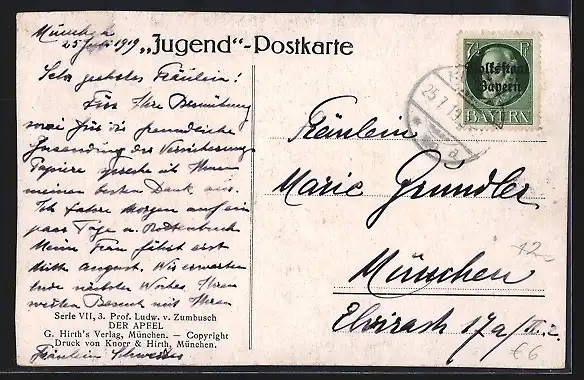 München
25 Juli 1919
„Jugend“-Postkarte
Sehr geehrtes Fräulein!
Für Ihre Bemühung
sowie für die freundliche
Zusendung der Versicherungs
Papiere spreche ich Ihnen
meinen besten Dank aus.
Ich fahre morgen auf ein
paar Tage n. Rottenbuch
Meine Frau fährt erst
Mitte August. Wir erwarten
Ende nächster Woche Ihren
werten Besuch mit Ihrem
Serie VII, 3. Prof. Ludw. v. Zumbusch
DER APFEL
G. Hirth's Verlag, München. — Copyright
Druck von Knorr & Hirth, München.
Fräulein
Volksstaat
Bayern
BAYERN
25.7.19
Fräulein
Marie Gundler
München
17a/II
12.-
€6